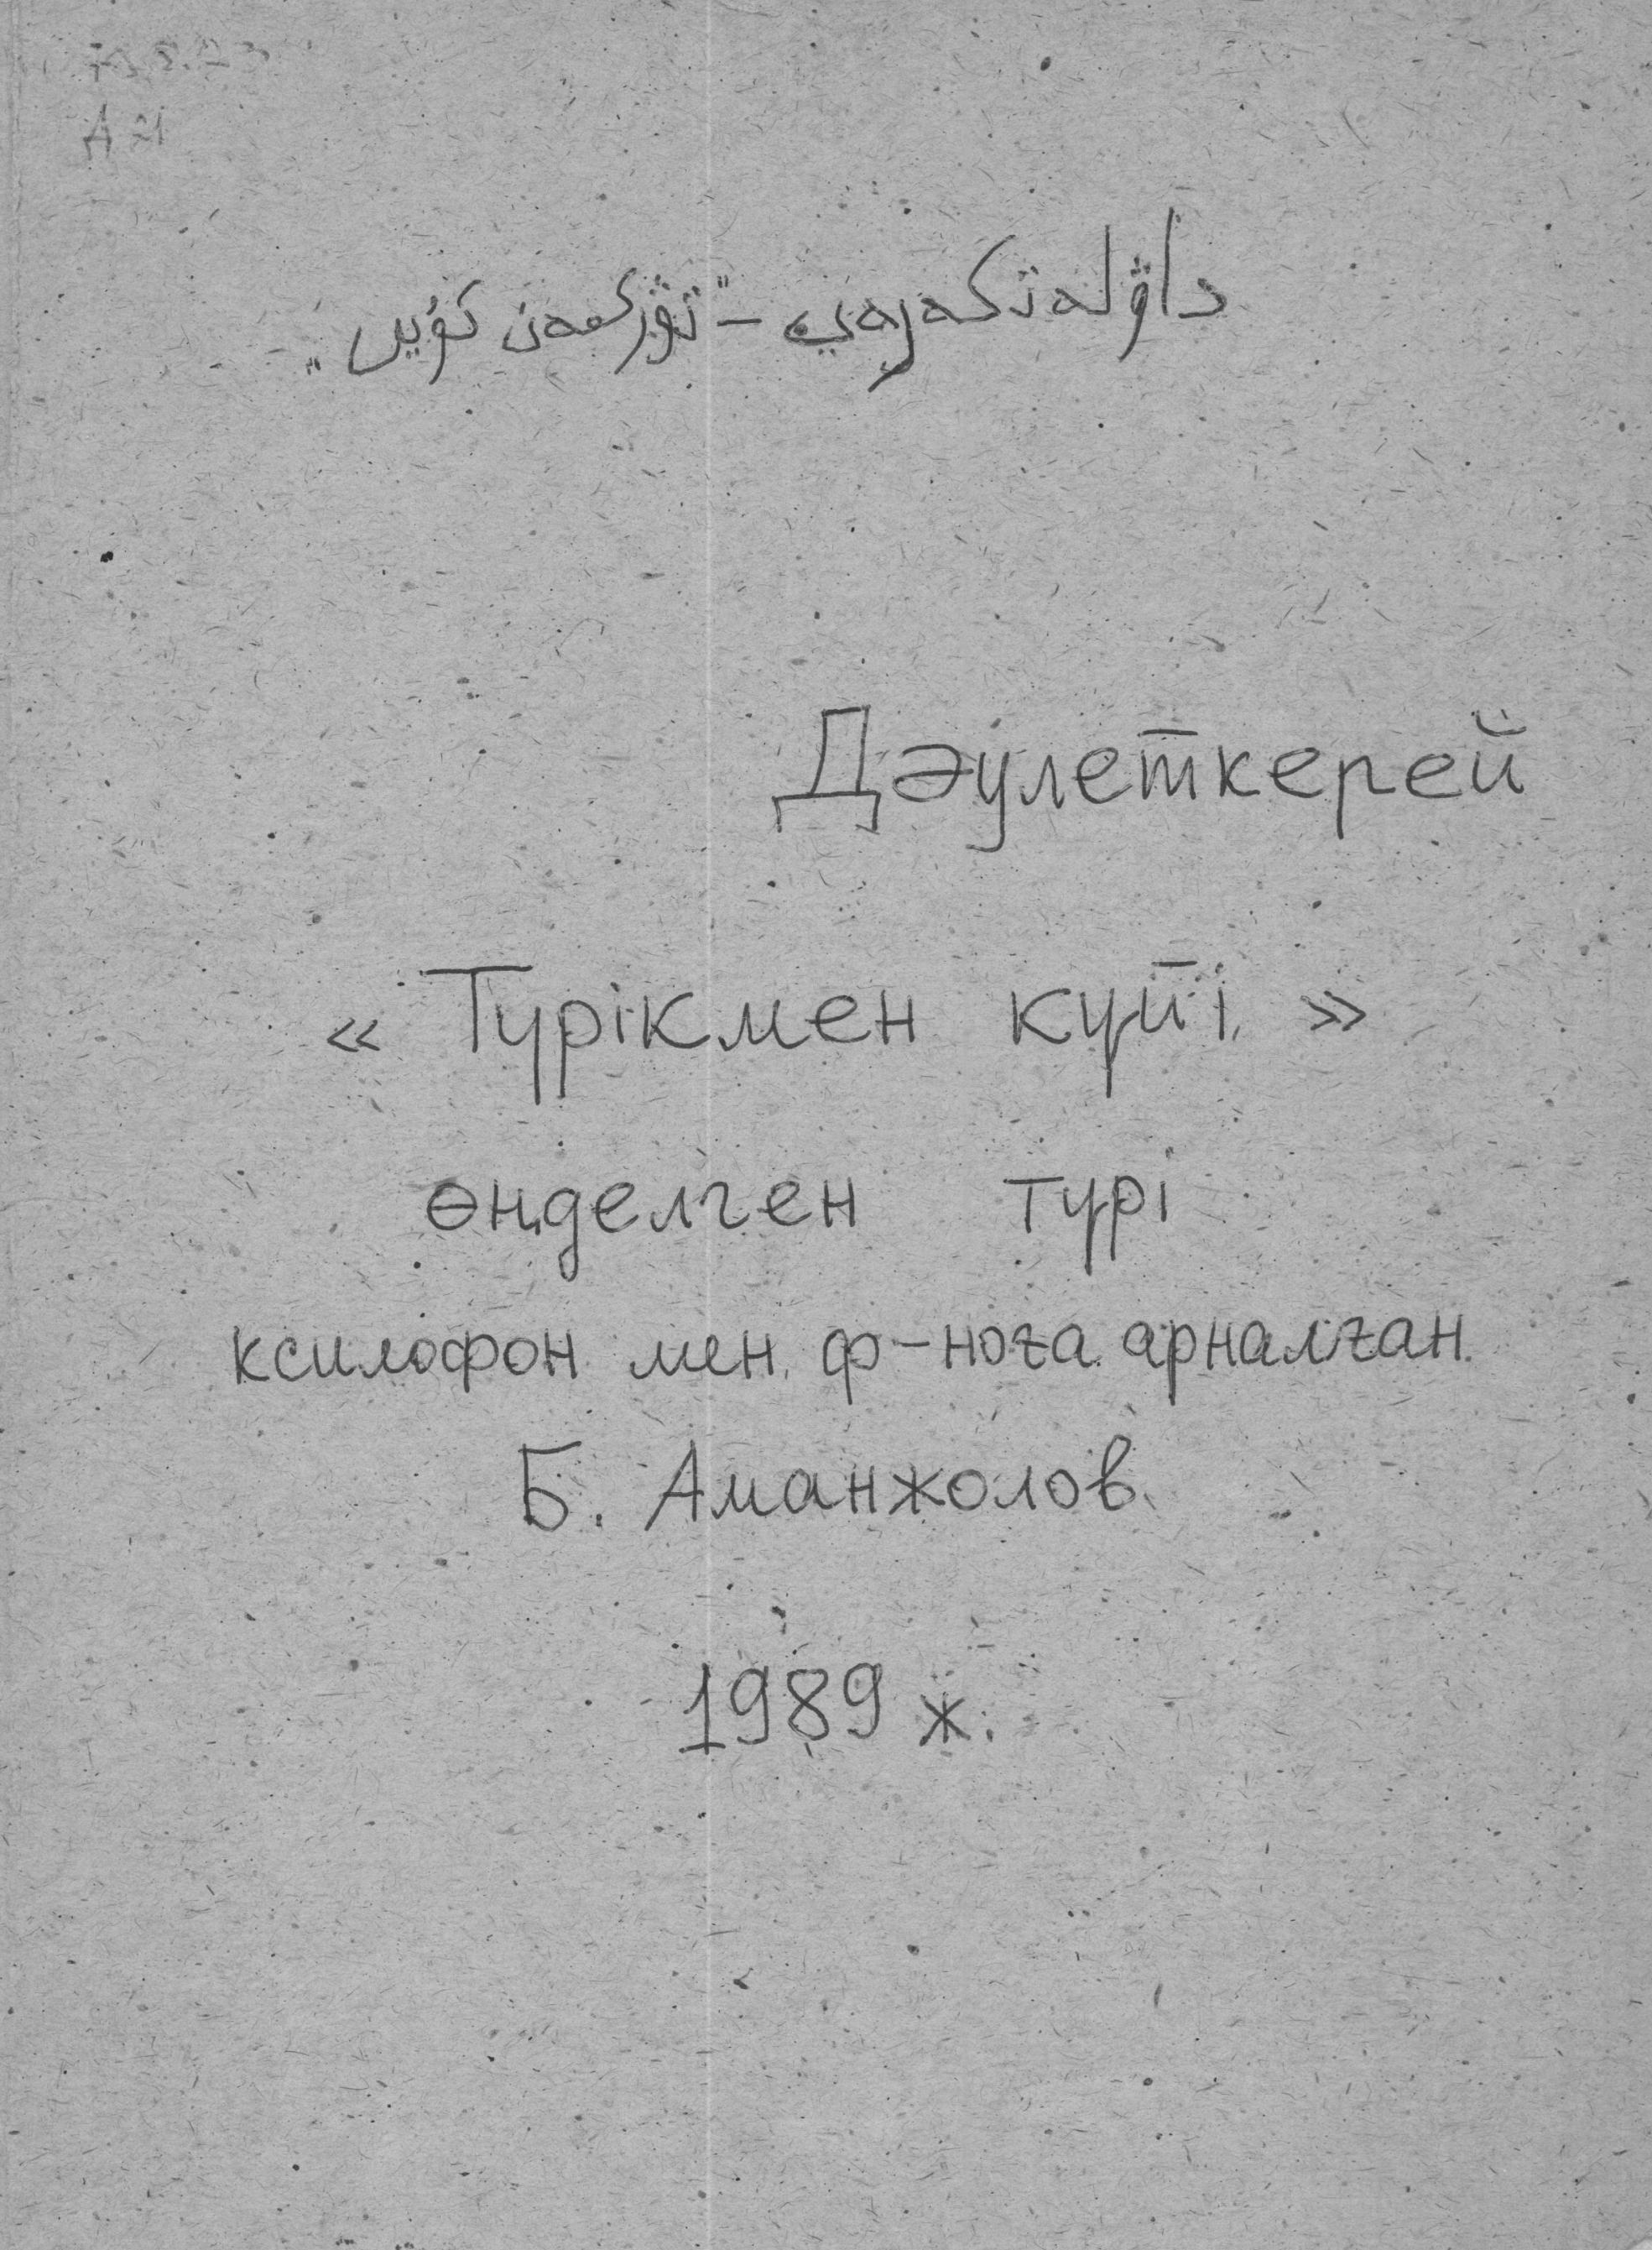 داۋلەتكەرەي – "تۇركمەن كۇيى"
Дәулеткерей
« Түрікмен күйі »
өңделген түрі
ксилофон мен ф-ноға арналған
Б. Аманжолов
1989 ж.